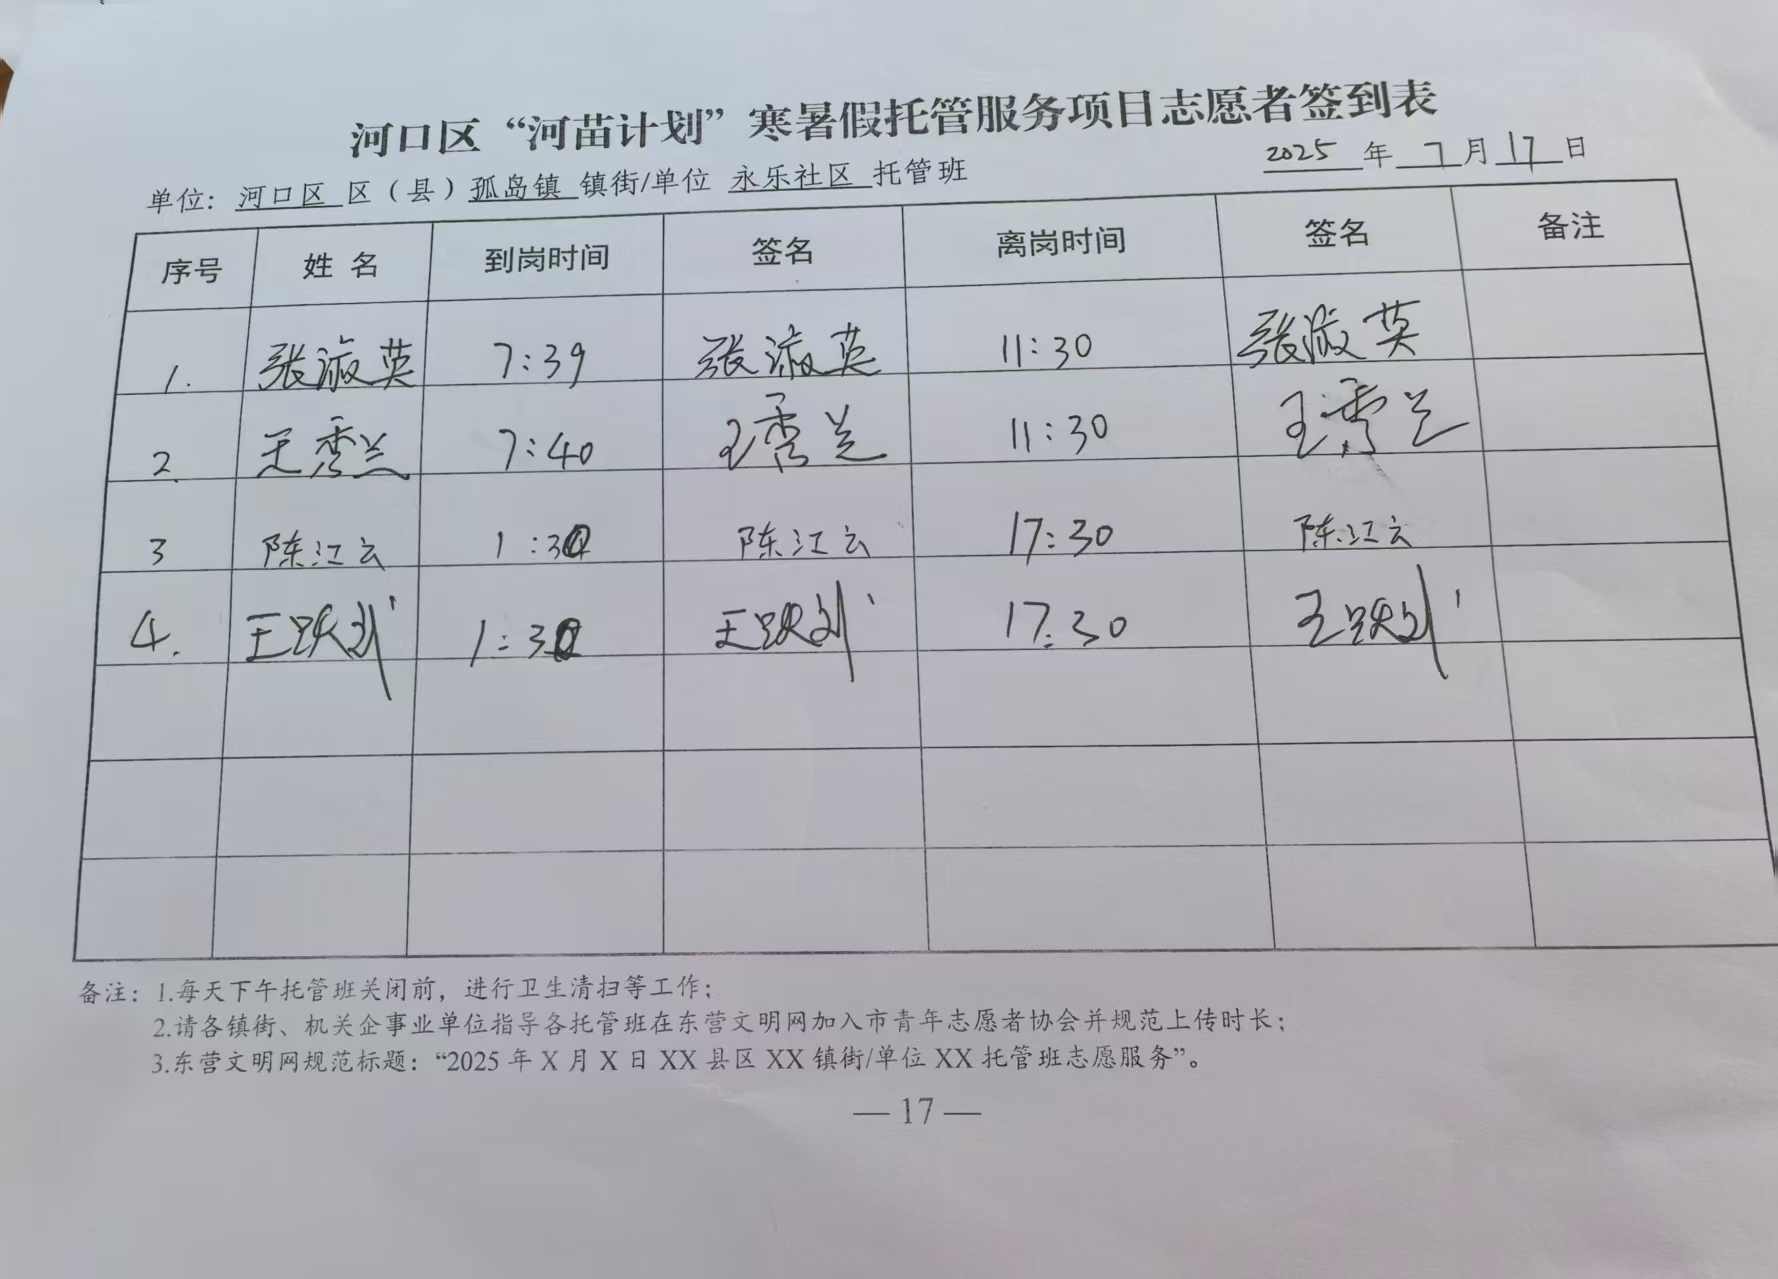 河口区“河苗计划”寒暑假托管服务项目志愿者签到表
2025 年 7 月 17 日
单位: 河口区 区（县）孤岛镇 镇街/单位 永乐社区 托管班
序号 姓名 到岗时间 签名 离岗时间 签名 备注
1. 张淑英 7:39 张淑英 11:30 张淑英
2. 王秀兰 7:40 王秀兰 11:30 王秀兰
3 陈江云 1:30 陈江云 17:30 陈江云
4. 王 1:30 王 17:30 王
备注：1.每天下午托管班关闭前，进行卫生清扫等工作；
2.请各镇街、机关企事业单位指导各托管班在东营文明网加入市青年志愿者协会并规范上传时长；
3.东营文明网规范标题：“2025 年 X 月 X 日 XX 县区 XX 镇街/单位 XX 托管班志愿服务”。
— 17 —